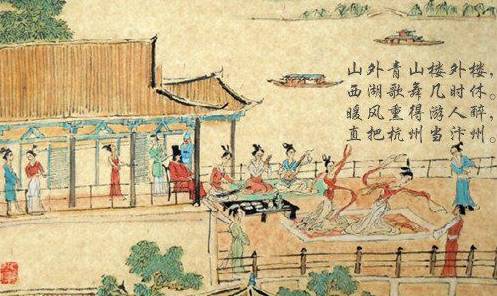 山外青山楼外楼。
西湖歌舞几时休。
暖风熏得游人醉，
直把杭州当汴州。